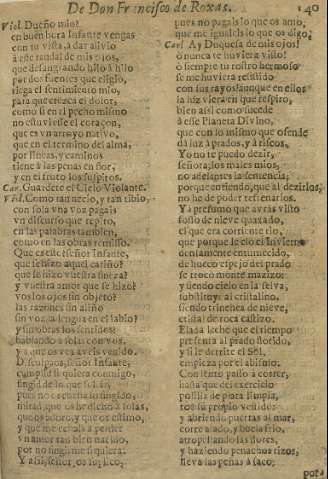 De Don Francisco de Roxas. 140
Viol. Dueño mio?
en buen hora Infante vengas
con tu vista, à dar alivio
à este raudal de mis ojos,
que desangrando hilo à hilo
por dos fuentes que eligiò,
riega el sentimiento mio,
para que crezca el dolor,
como si en el pecho mismo
no estuviesse el coraçon,
que es vn arroyo nativo,
que en el termino del alma,
por lineas, y caminos
tiene à las penas en flor,
y en el fruto los suspiros.
Car. Guardete el Cielo Violante.
Viol. Como tan necio, y tan tibio
con sola vna voz pagais
vn discurso que repito,
en las palabras tambien,
como en las obras remisso.
Que es este señor Infante,
que se hizo aquel cariño?
que se hizo vuestra fineza?
y vuestro amor que se hizo?
vos los ojos sin objeto?
las razones sin aliño
sin voz la lengua en el labio?
y sin obras los sentidos?
hablando a solas con vos,
y a que os vea aveis venido.
Disculpaos, señor Infante,
cumplid si quiera conmigo,
fingid
pues no es
mirad, que os he dicho à solas,
que os adoro, y que os estimo,
y que me
vn amor tan bien nacido,
por no fingir me siquiera.
Y assi, señor, os suplico,
pues no pagais lo que os amo,
que me igualeis lo que os digo,
Car. Ay Duquesa de mis ojos!
ò nunca te huviera visto!
ò siempre tu rostro hermoso
se me huviera resistido
con sus rayos! aunque en ellos
la luz viera en que respiro,
bien assi como sucede
à esse Planeta Divino,
que con lo mismo que ofende
dà luz à prados, y à riscos,
Yo no te puedo dezir,
señora, los males mios,
no adelantes la sentencia,
porque entiendo, que al dezirlos,
no he de poder referirlos.
Ya presumo que avràs visto
fosso de nieve quaxado,
el que era corriente rio,
que porque le elo el Invierno
ossadamente entumecido,
de hueco espejo del prado
se trocò monte mazizo:
y siendo cielo en la selva,
substituye al cristalino,
siendo trinchea de nieve,
cristal de roca castizo.
Elada leche que el tiempo
presenta al prado florido,
y si le derrite el Sol,
empieça por el abismo.
Con tento passo à correr,
hasta que del exercicio
polilla de plata limpia,
tose su propio vestido:
y abriendo puertas al mar,
corre atado, y bucea frio,
atropellando las flores,
y haziendo penachos rizos,
lleva las penas à saco;
por